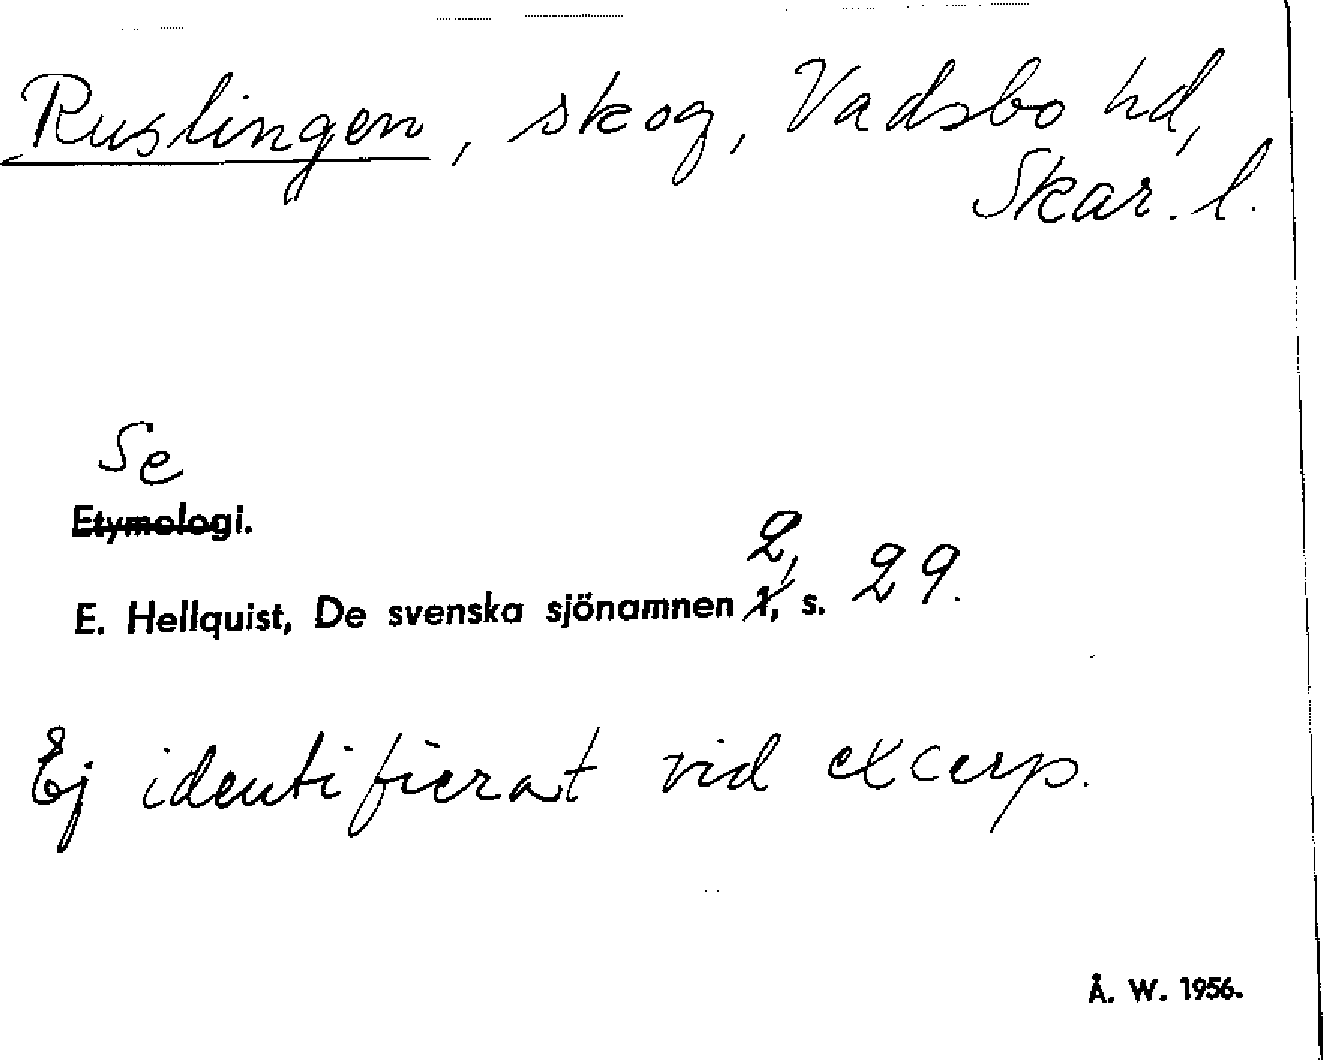 Ruslingen, skog, Vadsbo hd,
Skar. l.
Se
Etymologi.
E. Hellquist, De svenska sjönamnen 1, 2, s. 29.
Ej identifierat vid excerp.
Å. W. 1956.